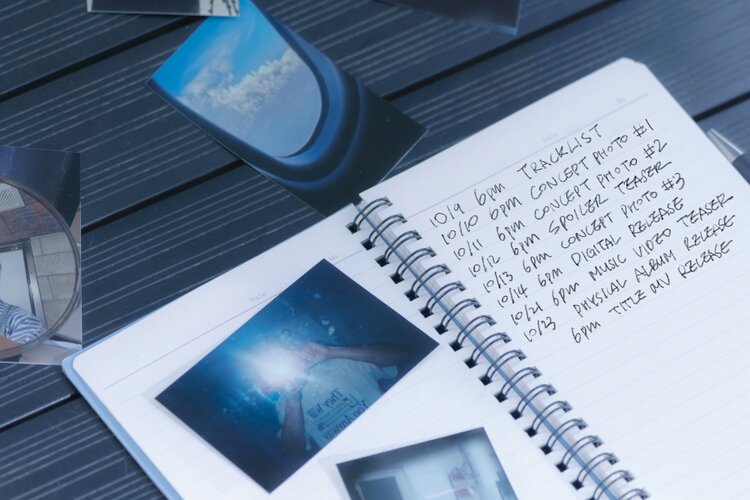 10/9 6pm TRACKLIST
10/10 6pm CONCEPT PHOTO #1
10/11 6pm CONCEPT PHOTO #2
10/12 6pm SPOILER TEASER
10/13 6pm CONCEPT PHOTO #3
10/14 6pm DIGITAL RELEASE
10/21 6pm MUSIC VIDEO TEASER
10/23 PHYSICAL ALBUM RELEASE
6pm TITLE MV RELEASE
Date
No